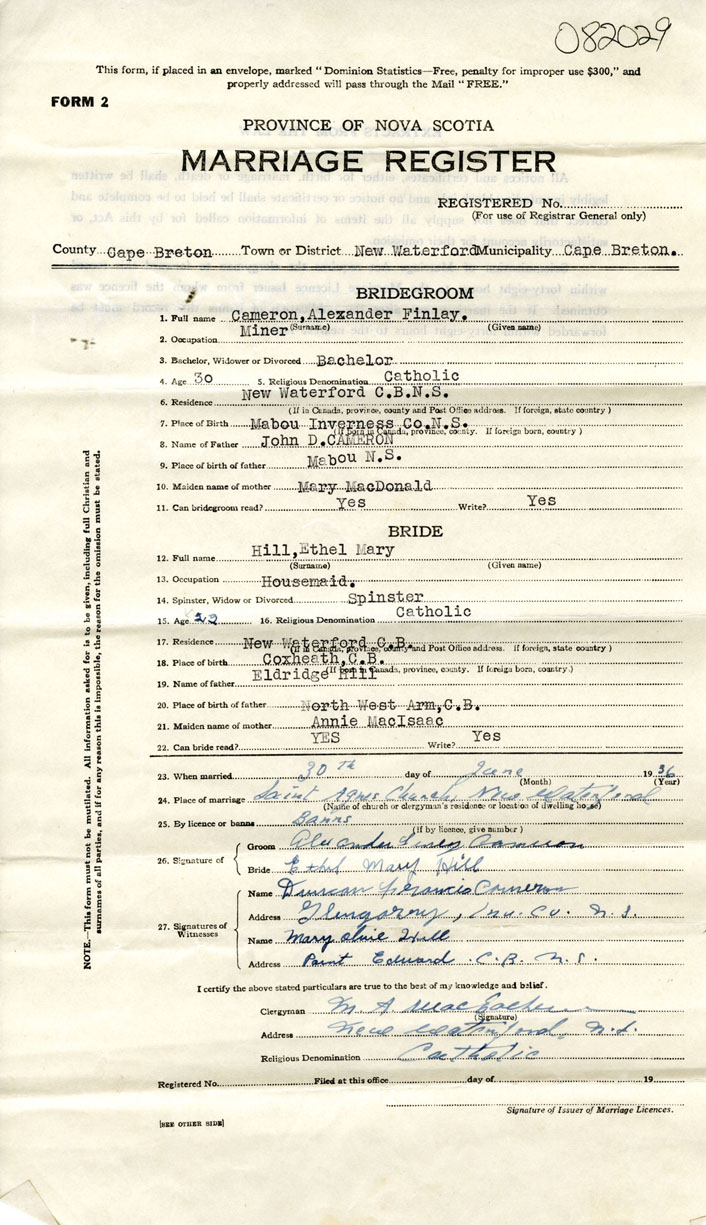 082029
This form, if placed in an envelope, marked "Dominion Statistics—Free, penalty for improper use $300," and
properly addressed will pass through the Mail "FREE."
FORM 2
PROVINCE OF NOVA SCOTIA
MARRIAGE REGISTER
REGISTERED No.
(For use of Registrar General only)
County Cape Breton Town or District New Waterford Municipality Cape Breton.
BRIDEGROOM
1. Full name Cameron, Alexander Finlay.
(Surname) (Given name)
2. Occupation Miner
3. Bachelor, Widower or Divorced Bachelor
4. Age 30 5. Religious Denomination Catholic
6. Residence New Waterford C.B.N.S.
(If in Canada, province, county and Post Office address. If foreign, state country)
7. Place of Birth Mabou Inverness Co.N.S.
(If born in Canada, province, county. If foreign born, country)
8. Name of Father John D.CAMERON
9. Place of birth of father Mabou N.S.
10. Maiden name of mother Mary MacDonald
11. Can bridegroom read? Yes Write? Yes
BRIDE
12. Full name Hill, Ethel Mary
(Surname) (Given name)
13. Occupation Housemaid.
14. Spinster, Widow or Divorced Spinster
15. Age 22 16. Religious Denomination Catholic
17. Residence New Waterford C.B.
(If in Canada, province, county and Post Office address. If foreign, state country)
18. Place of birth Coxheath, C.B.
(If born in Canada, province, county. If foreign born, country.)
19. Name of father Eldridge Hill
20. Place of birth of father North West Arm, C.B.
21. Maiden name of mother Annie MacIsaac
22. Can bride read? YES Write? Yes
23. When married 30th day of June 1936
(Month) (Year)
24. Place of marriage Saint Agnes Church, New Waterford
(Name of church or clergyman's residence or location of dwelling house)
25. By licence or banns Banns
(If by licence, give number)
26. Signature of
Groom Alexander Finley Cameron
Bride Ethel Mary Hill
27. Signatures of Witnesses
Name Duncan Francis Cameron
Address Glengarry, Inv. Co. N.S.
Name Mary Olive Hill
Address Point Edward C.B. N.S.
I certify the above stated particulars are true to the best of my knowledge and belief.
Clergyman M A
(Signature)
Address New Waterford, N.S.
Religious Denomination Catholic
Registered No. Filed at this office day of 19
Signature of Issuer of Marriage Licences.
[SEE OTHER SIDE]
NOTE.—This form must not be mutilated. All information asked for is to be given, including full Christian and
surnames of all parties, and if for any reason this is impossible, the reason for the omission must be stated.